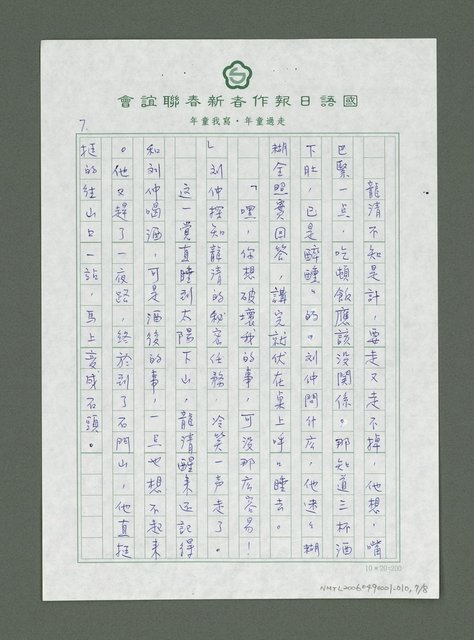 國語日報作者新春聯誼會
走過童年・寫我童年
7.
龍清不知是計，要走又走不掉，他想，嘴
巴緊一点，吃頓飯應該没関係。那知道三杯酒
下肚，已是醉醺〻的。刘仲問什庅，他迷〻糊
糊全照實回答，講完就伏在桌上呼口睡去。
「嘿，你想破壞我的事，可没那庅容易！
」刘仲探知龍清的秘密任務，冷笑一声走了。
這一覺直睡到太陽下山，龍清醒来还記得
和刘仲喝酒，可是酒後的事，一点也想不起来
。他又趕了一夜路，終於到了石門山，他直挺
挺的往山上一站，馬上变成石頭。
10×20=200
NMTL20060490001-010, 7/8